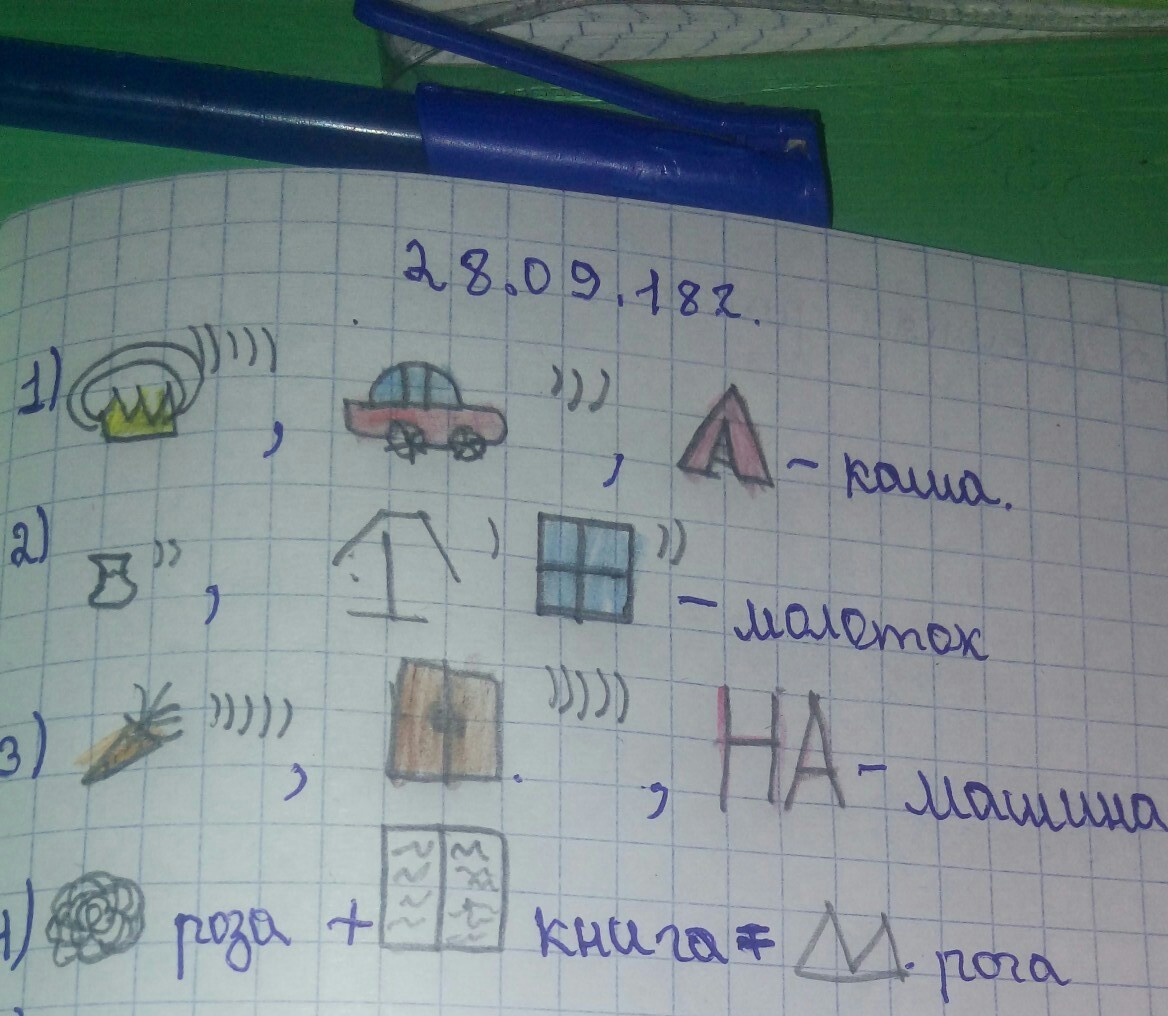 28.09.18г.
1) ))))) , ))) , А - каша.
2) )) , ) )) - молоток
3) ))))) , ))))) , НА - машина
4) роза + книга = рога